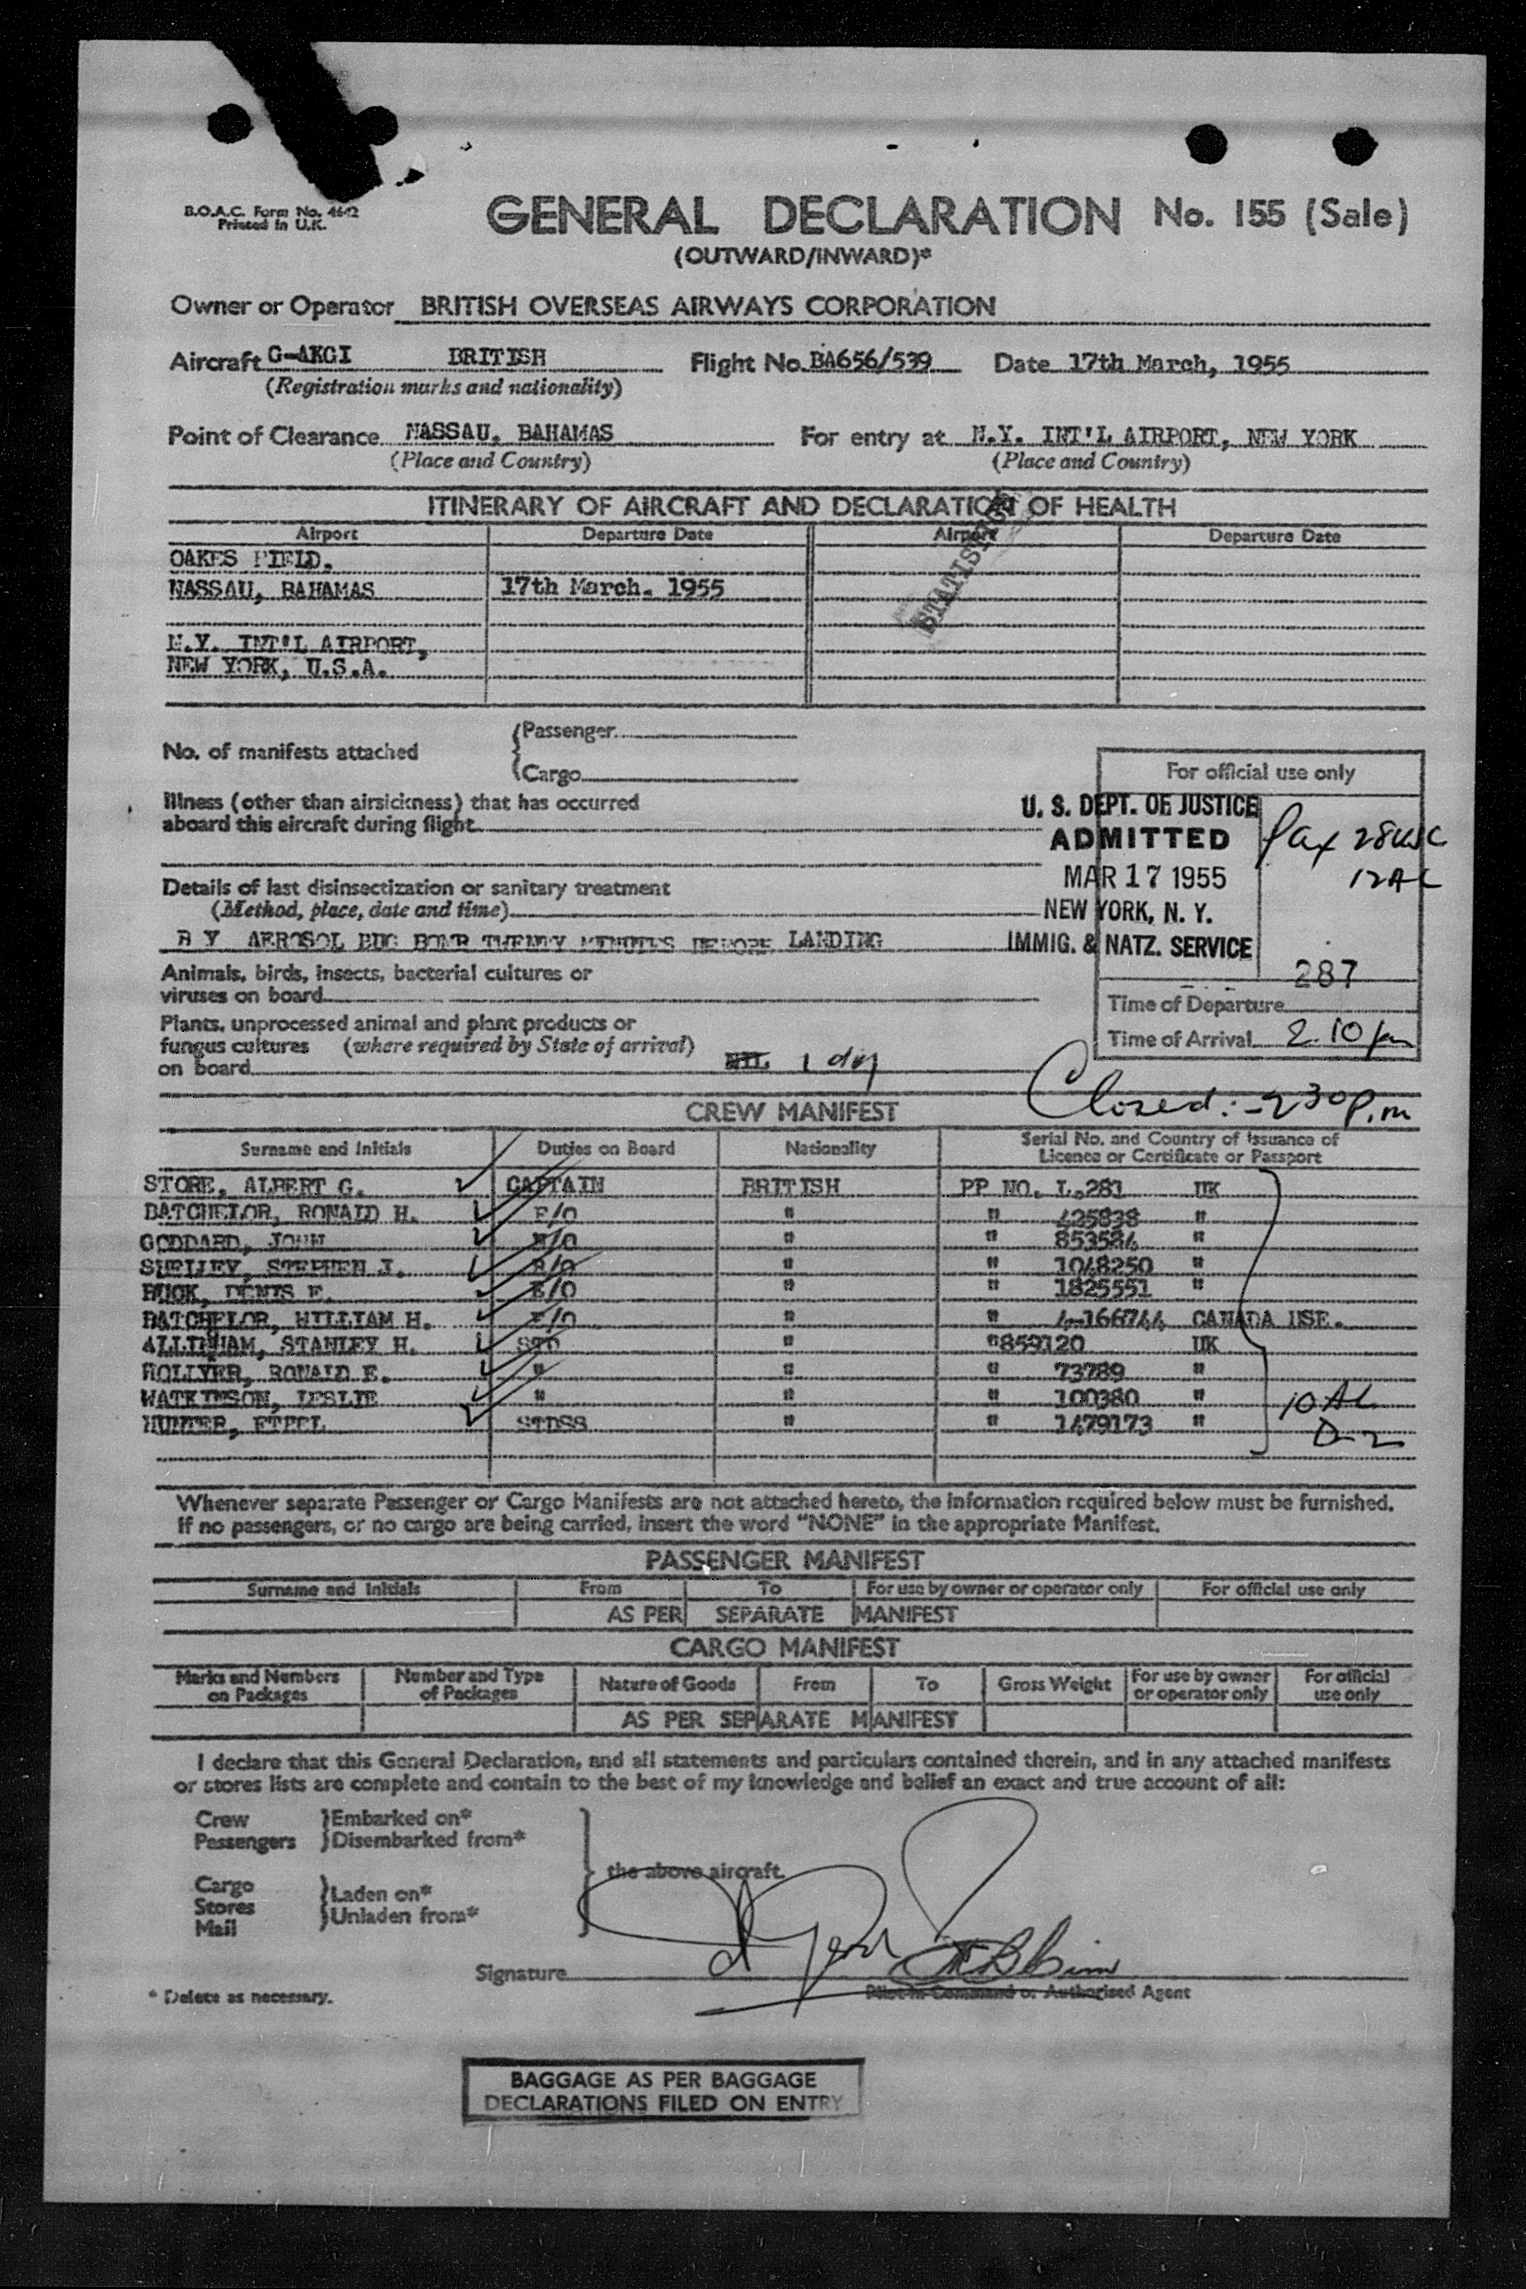 B.O.A.C. Form No. 4642
Printed in U.K.
GENERAL DECLARATION No. 155 (Sale)
(OUTWARD/INWARD)*
Owner or Operator BRITISH OVERSEAS AIRWAYS CORPORATION
Aircraft G-AKGI BRITISH Flight No. BA656/539 Date 17th March, 1955
(Registration marks and nationality)
Point of Clearance NASSAU, BAHAMAS For entry at N.Y. INT'L AIRPORT, NEW YORK
(Place and Country) (Place and Country)
ITINERARY OF AIRCRAFT AND DECLARATION OF HEALTH
Airport Departure Date Airport Departure Date
OAKES FIELD,
NASSAU, BAHAMAS 17th March. 1955
N.Y. INT'L AIRPORT,
NEW YORK, U.S.A.
No. of manifests attached
Passenger
Cargo
For official use only
Illness (other than airsickness) that has occurred
aboard this aircraft during flight
U. S. DEPT. OF JUSTICE
ADMITTED
MAR 17 1955
NEW YORK, N. Y.
IMMIG. & NATZ. SERVICE
Pax 28 USC
12 AL
287
Details of last disinsectization or sanitary treatment
(Method, place, date and time)
BY AEROSOL BUG BOMB TWENTY MINUTES BEFORE LANDING
Animals, birds, insects, bacterial cultures or
viruses on board
Time of Departure
Plants, unprocessed animal and plant products or
fungus cultures (where required by State of arrival)
on board NIL 1 dog
Time of Arrival 2.10 pm
Closed:- 2 30 p.m
CREW MANIFEST
Surname and Initials Duties on Board Nationality Serial No. and Country of Issuance of
Licence or Certificate or Passport
STORE, ALBERT G. CAPTAIN BRITISH PP NO. L.281 UK
BATCHELOR, RONALD H. F/O " " 425838 "
GODDARD, JOHN N/O " " 853584 "
SHELLEY, STEPHEN J. R/O " " 1048250 "
BUCK, DENIS E. E/O " " 1825551 "
BATCHELOR, WILLIAM H. F/O " " 4-166744 CANADA USE.
ALLINHAM, STANLEY H. STD " " 859120 UK
HOLLYER, RONALD E. " " " 73789 "
WATKINSON, LESLIE " " " 100380 "
HUNTER, ETHEL STDSS " " 1479173 "
10 AL
D-2
Whenever separate Passenger or Cargo Manifests are not attached hereto, the information required below must be furnished.
If no passengers, or no cargo are being carried, insert the word "NONE" in the appropriate Manifest.
PASSENGER MANIFEST
Surname and Initials From To For use by owner or operator only For official use only
AS PER SEPARATE MANIFEST
CARGO MANIFEST
Marks and Numbers on Packages Number and Type of Packages Nature of Goods From To Gross Weight For use by owner or operator only For official use only
AS PER SEPARATE MANIFEST
I declare that this General Declaration, and all statements and particulars contained therein, and in any attached manifests
or stores lists are complete and contain to the best of my knowledge and belief an exact and true account of all:
Crew Embarked on*
Passengers Disembarked from*
the above aircraft.
Cargo Laden on*
Stores Unladen from*
Mail
Signature
Pilot in Command or Authorised Agent
* Delete as necessary.
BAGGAGE AS PER BAGGAGE
DECLARATIONS FILED ON ENTRY